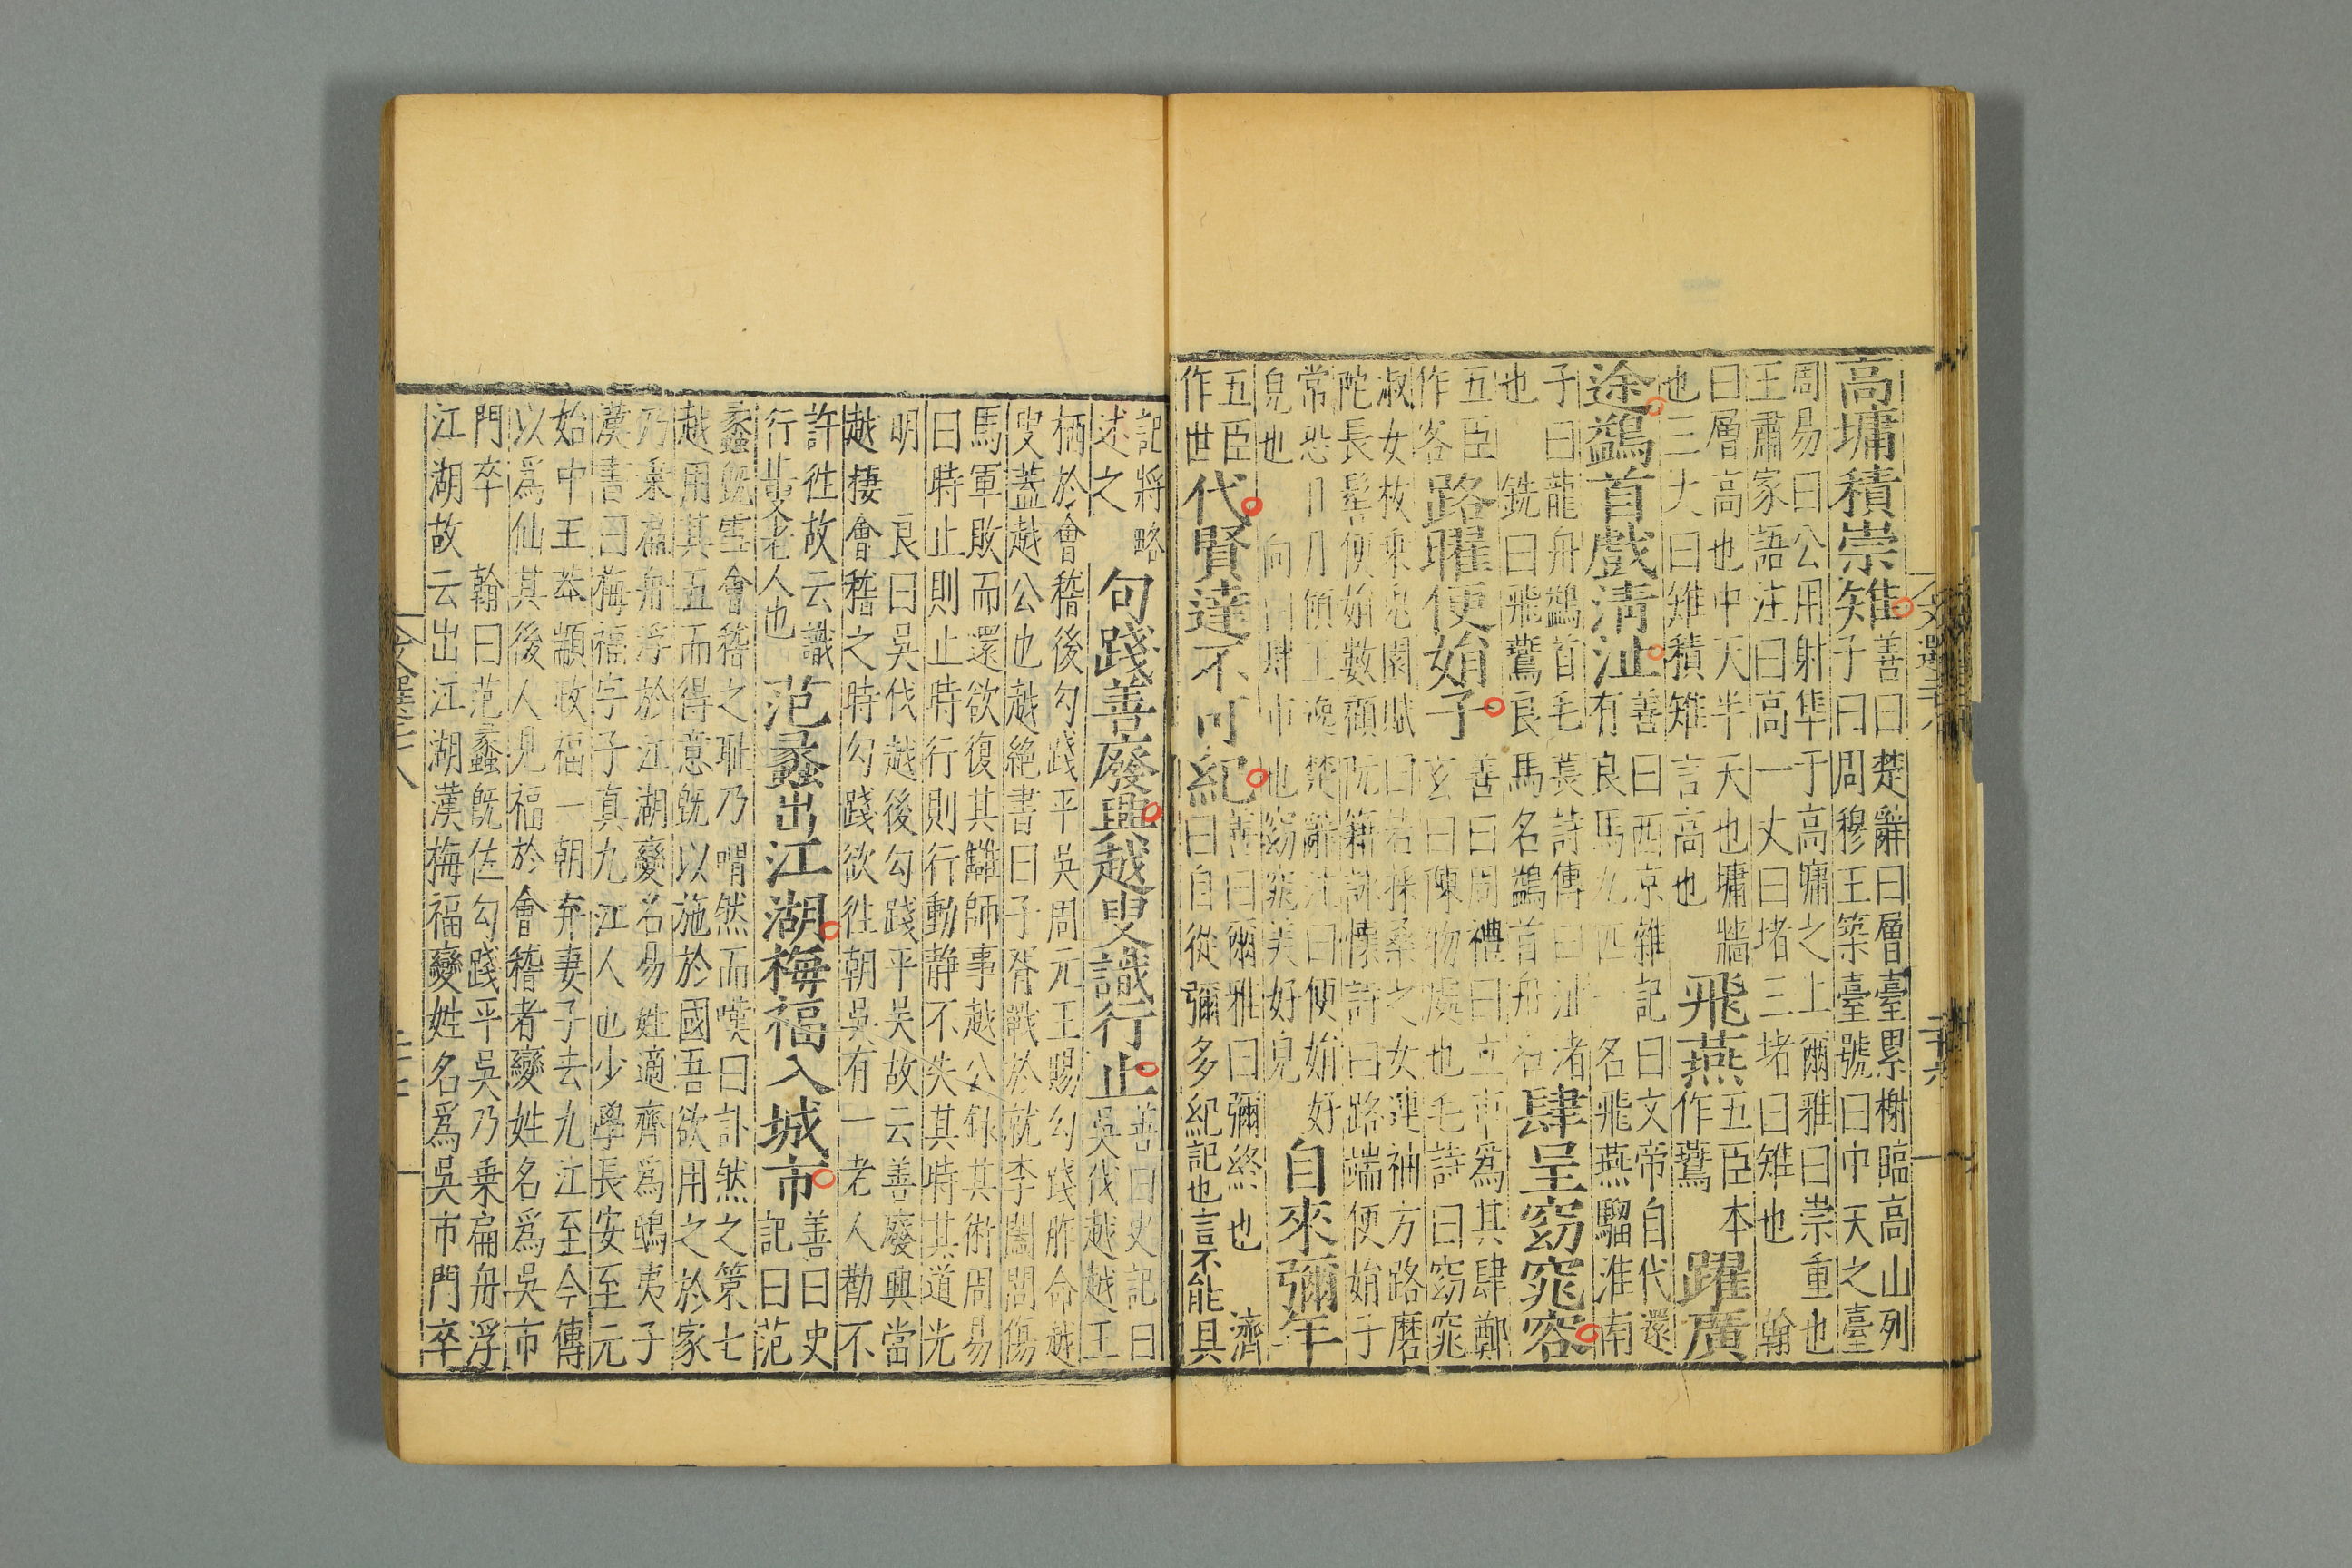 高墉積崇雉
善曰楚辭曰層臺累榭臨高山列
子曰周穆王築臺號曰中天之臺
周易曰公用射隼于高墉之上爾雅曰崇重也
王肅家語注曰高一丈曰堵三堵曰雉也 翰
曰層高也中天半天也墉牆
也三丈曰雉積雉言高也
飛燕
五臣本
作鷰
躍廣
途鷁首戲清沚
善曰西京雜記曰文帝自代還
有良馬九匹一名飛燕騮淮南
子曰龍舟鷁首毛萇詩傳曰沚者
也 銑曰飛鷰良馬名鷁首舟名
肆呈窈窕容
五臣
作客
路曜便娟子
善曰周禮曰立市爲其肆鄭
玄曰陳物處也毛詩曰窈窕
淑女枚乘兔園賦曰若採桑之女連袖方路磨
陀長髻便娟數顧阮籍詠懷詩曰路端便娟子
常恐日月傾王逸楚辭注曰便娟好
皃也 向曰肆市也窈窕美好皃
自來彌年
五臣
作世
代賢達不可紀
善曰爾雅曰彌終也 濟
曰自從彌多紀記也言不能具
文選二十八
二十六
記將略
述之
句踐善廢興越叟識行止
善曰史記曰
吳伐越越王
栖於會稽後勾踐平吳周元王賜勾踐胙命越
叟蓋越公也越絕書曰子胥戰於就李闔閭傷
馬軍敗而還欲復其讎師事越公錄其術周易
曰時止則止時行則行動静不失其時其道光
明 良曰吳伐越後勾踐平吳故云善廢興當
越棲會稽之時勾踐欲往朝吳有一老人勸不
許往故云識
行止叟老人也
范蠡出江湖梅福入城市
善曰史
記曰范
蠡旣雪會稽之耻乃喟然而嘆曰計然之策七
越用其五而得意旣以施於國吾欲用之於家
乃乘扁舟浮於江湖變名易姓適齊爲鴟夷子
漢書曰梅福字子真九江人也少學長安至元
始中王莽顓政福一朝弃妻子去九江至今傳
以爲仙其後人見福於會稽者變姓名爲吳市
門卒 翰曰范蠡旣佐勾踐平吳乃乘扁舟浮
江湖故云出江湖漢梅福變姓名爲吳市門卒